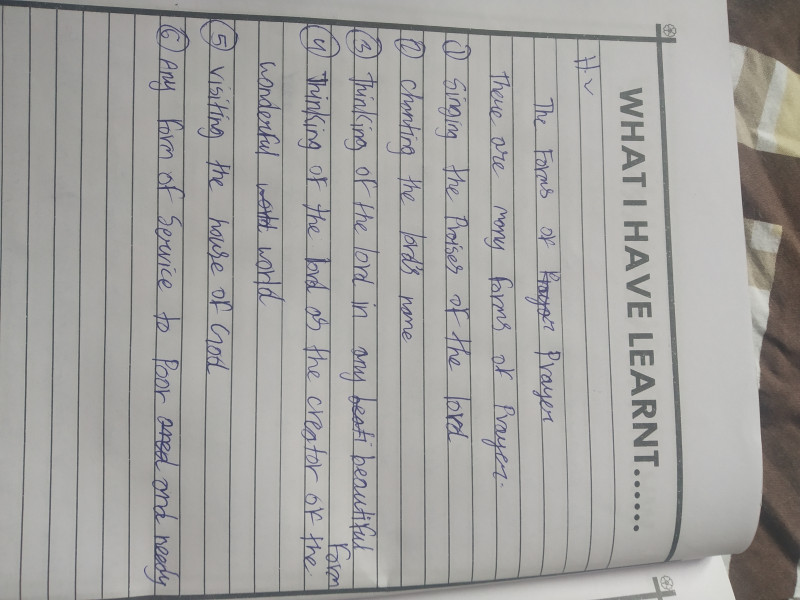 WHAT I HAVE LEARNT......
H.W
The Forms of Prayer
There are many forms of Prayer.
① Singing the Praises of the lord
② chanting the lord's name
③ Thinking of the lord in any beautiful form
④ Thinking of the lord as the creator of the
wonderful world
⑤ visiting the house of God
⑥ Any form of Service to Poor and needy